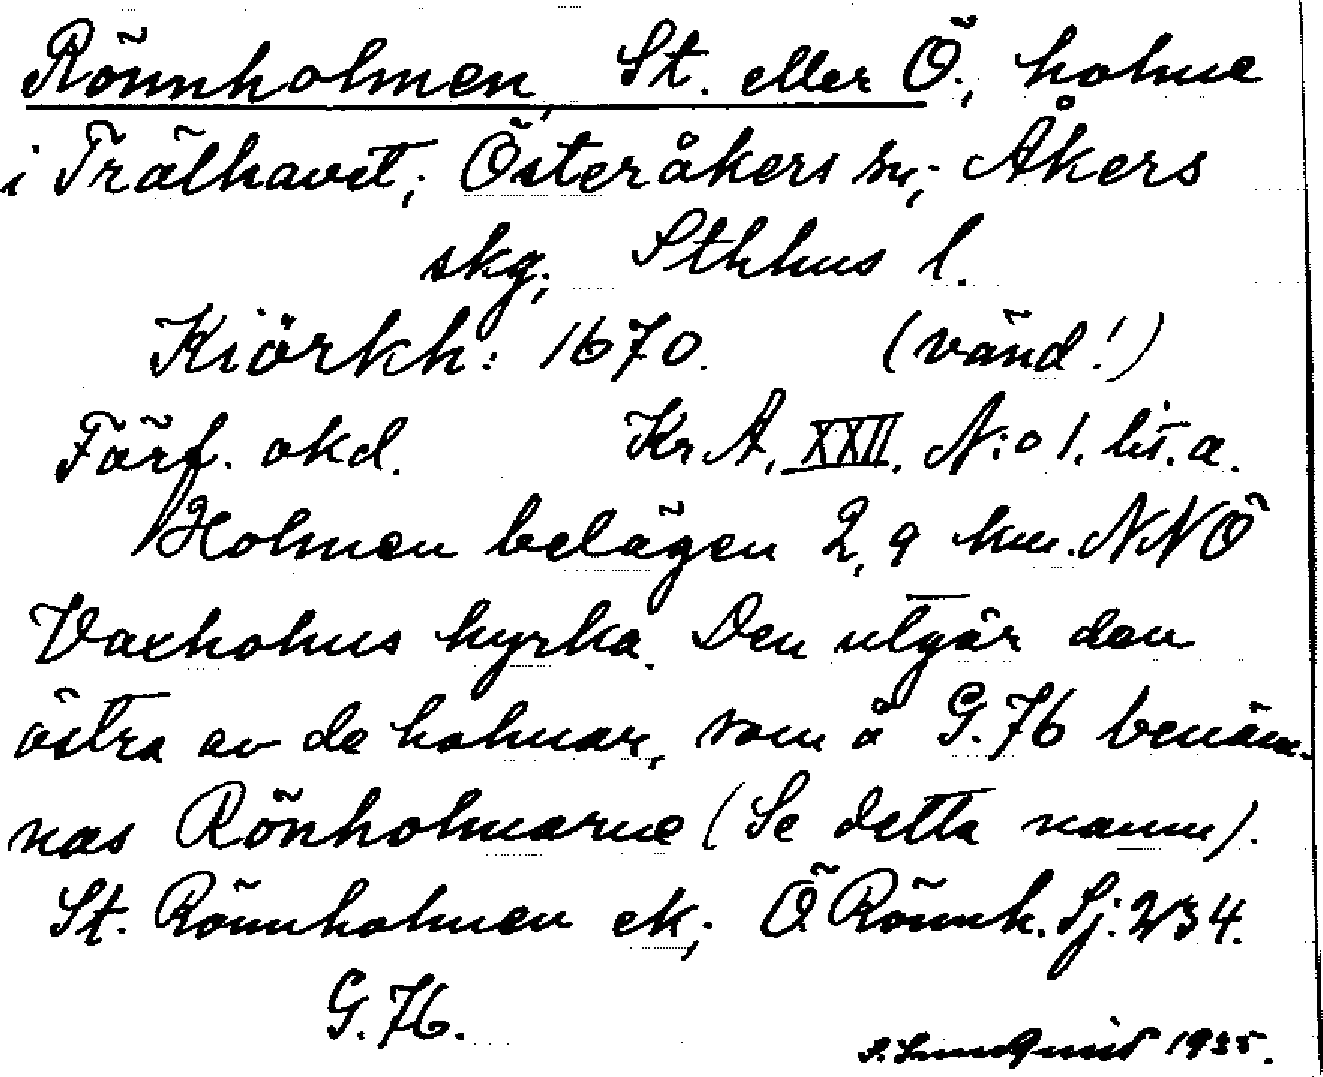 Rönnholmen, St. eller Ö., holme
i Trälhavet; Österåkers sn; Åkers
skg; Sthlms l.
Kiörkh: 1670. (vänd!)
Förf. okd. Kr.A. XXII. N:o 1. lit. a.
Holmen belägen 2,9 km. NNÖ
Vaxholms kyrka. Den utgår den
östra av de holmar, som å G. 76 benäm-
nas Rönholmarne (Se detta namn).
St. Rönnholmen ek; Ö Rönnh. Sj: 234.
G. 76.
1935.